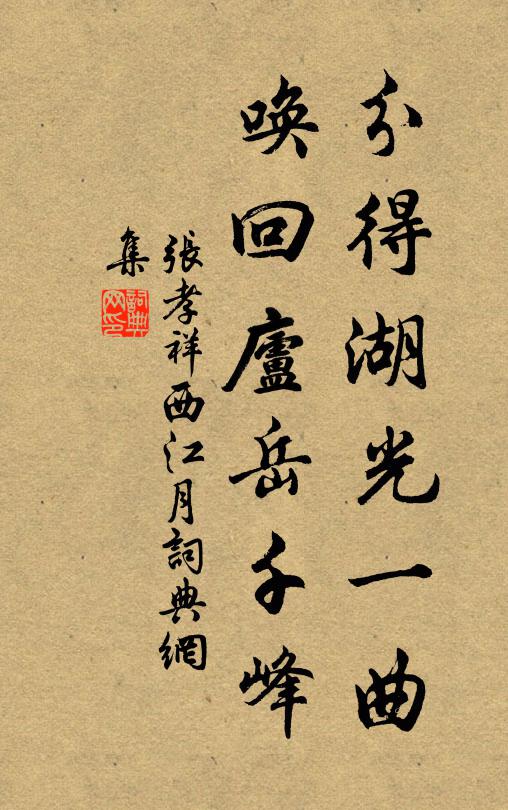 分得湖光一曲
唤回廬岳千峰
張孝祥西江月詞典網
集
詞典
网印